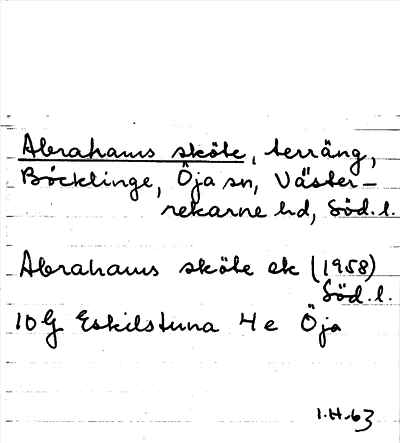 Abrahams sköte, terräng,
Böcklinge, Öja sn, Väster-
rekarne hd, Söd.l.
Abrahams sköte ek (1958)
Söd.l.
10 G Eskilstuna 4 e Öja
1.H.63